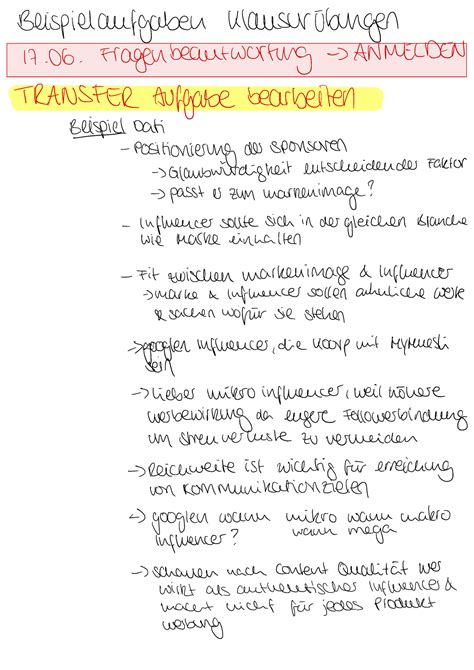 Beispielaufgaben Klausurübungen
17.06. Fragenbeantwortung → ANMELDEN
TRANSFER Aufgabe bearbeiten
Beispiel Dati
- Positionierung des Sponsoren
→ Glaubwürdigkeit entscheidender Faktor
→ passt er zum Markenimage?
- Influencer sollte sich in der gleichen Branche
wie Marke einhalten
- Fit zwischen Markenimage & Influencer
→ Marke & Influencer sollen ähnliche Werte
& Sachen wofür sie stehen
→ googlen Influencer, die Koop mit MyMuesli
sein
→ lieber mikro influencer, weil höhere
werbewirkung da engere Followerbindung
um Streuverluste zu vermeiden
→ Reichweite ist wichtig für erreichung
von Kommunikationzielen
→ googlen wann mikro wann makro
influencer? wann mega
→ schauen nach Content Qualität wer
wirkt als authentischer Influencer &
macht nicht für jedes Produkt
werbung